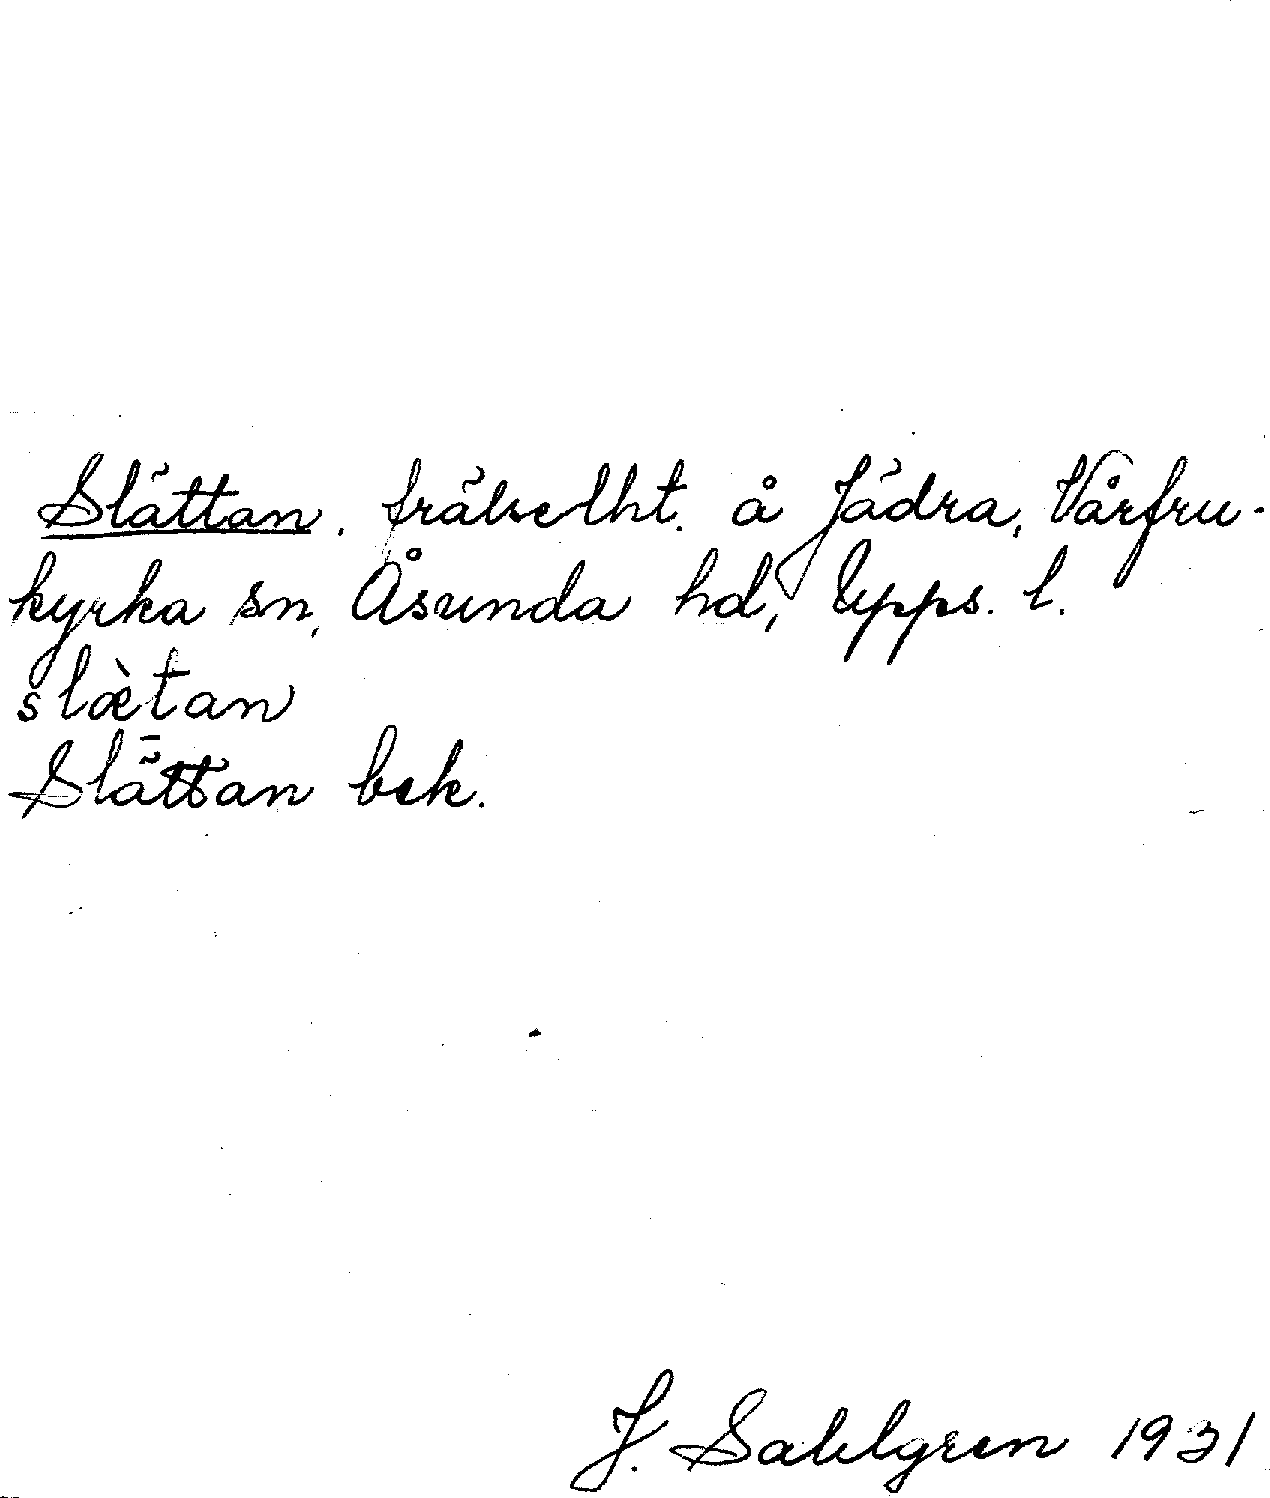 Slättan. frälselht. å Jädra, Vårfru-
kyrka sn, Åsunda hd, Upps. l.
slæ̀tan
Slättan bek.
J. Sahlgren 1931